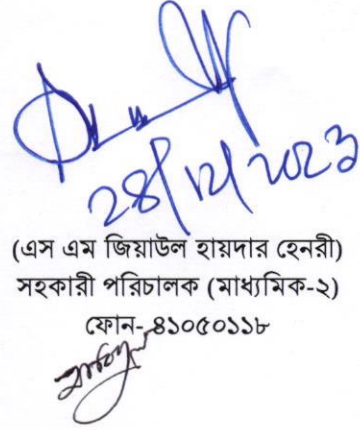 ২৪/১২/২০২৩
(এস এম জিয়াউল হায়দার হেনরী)
সহকারী পরিচালক (মাধ্যমিক-২)
ফোন- ৪১০৫০১১৮